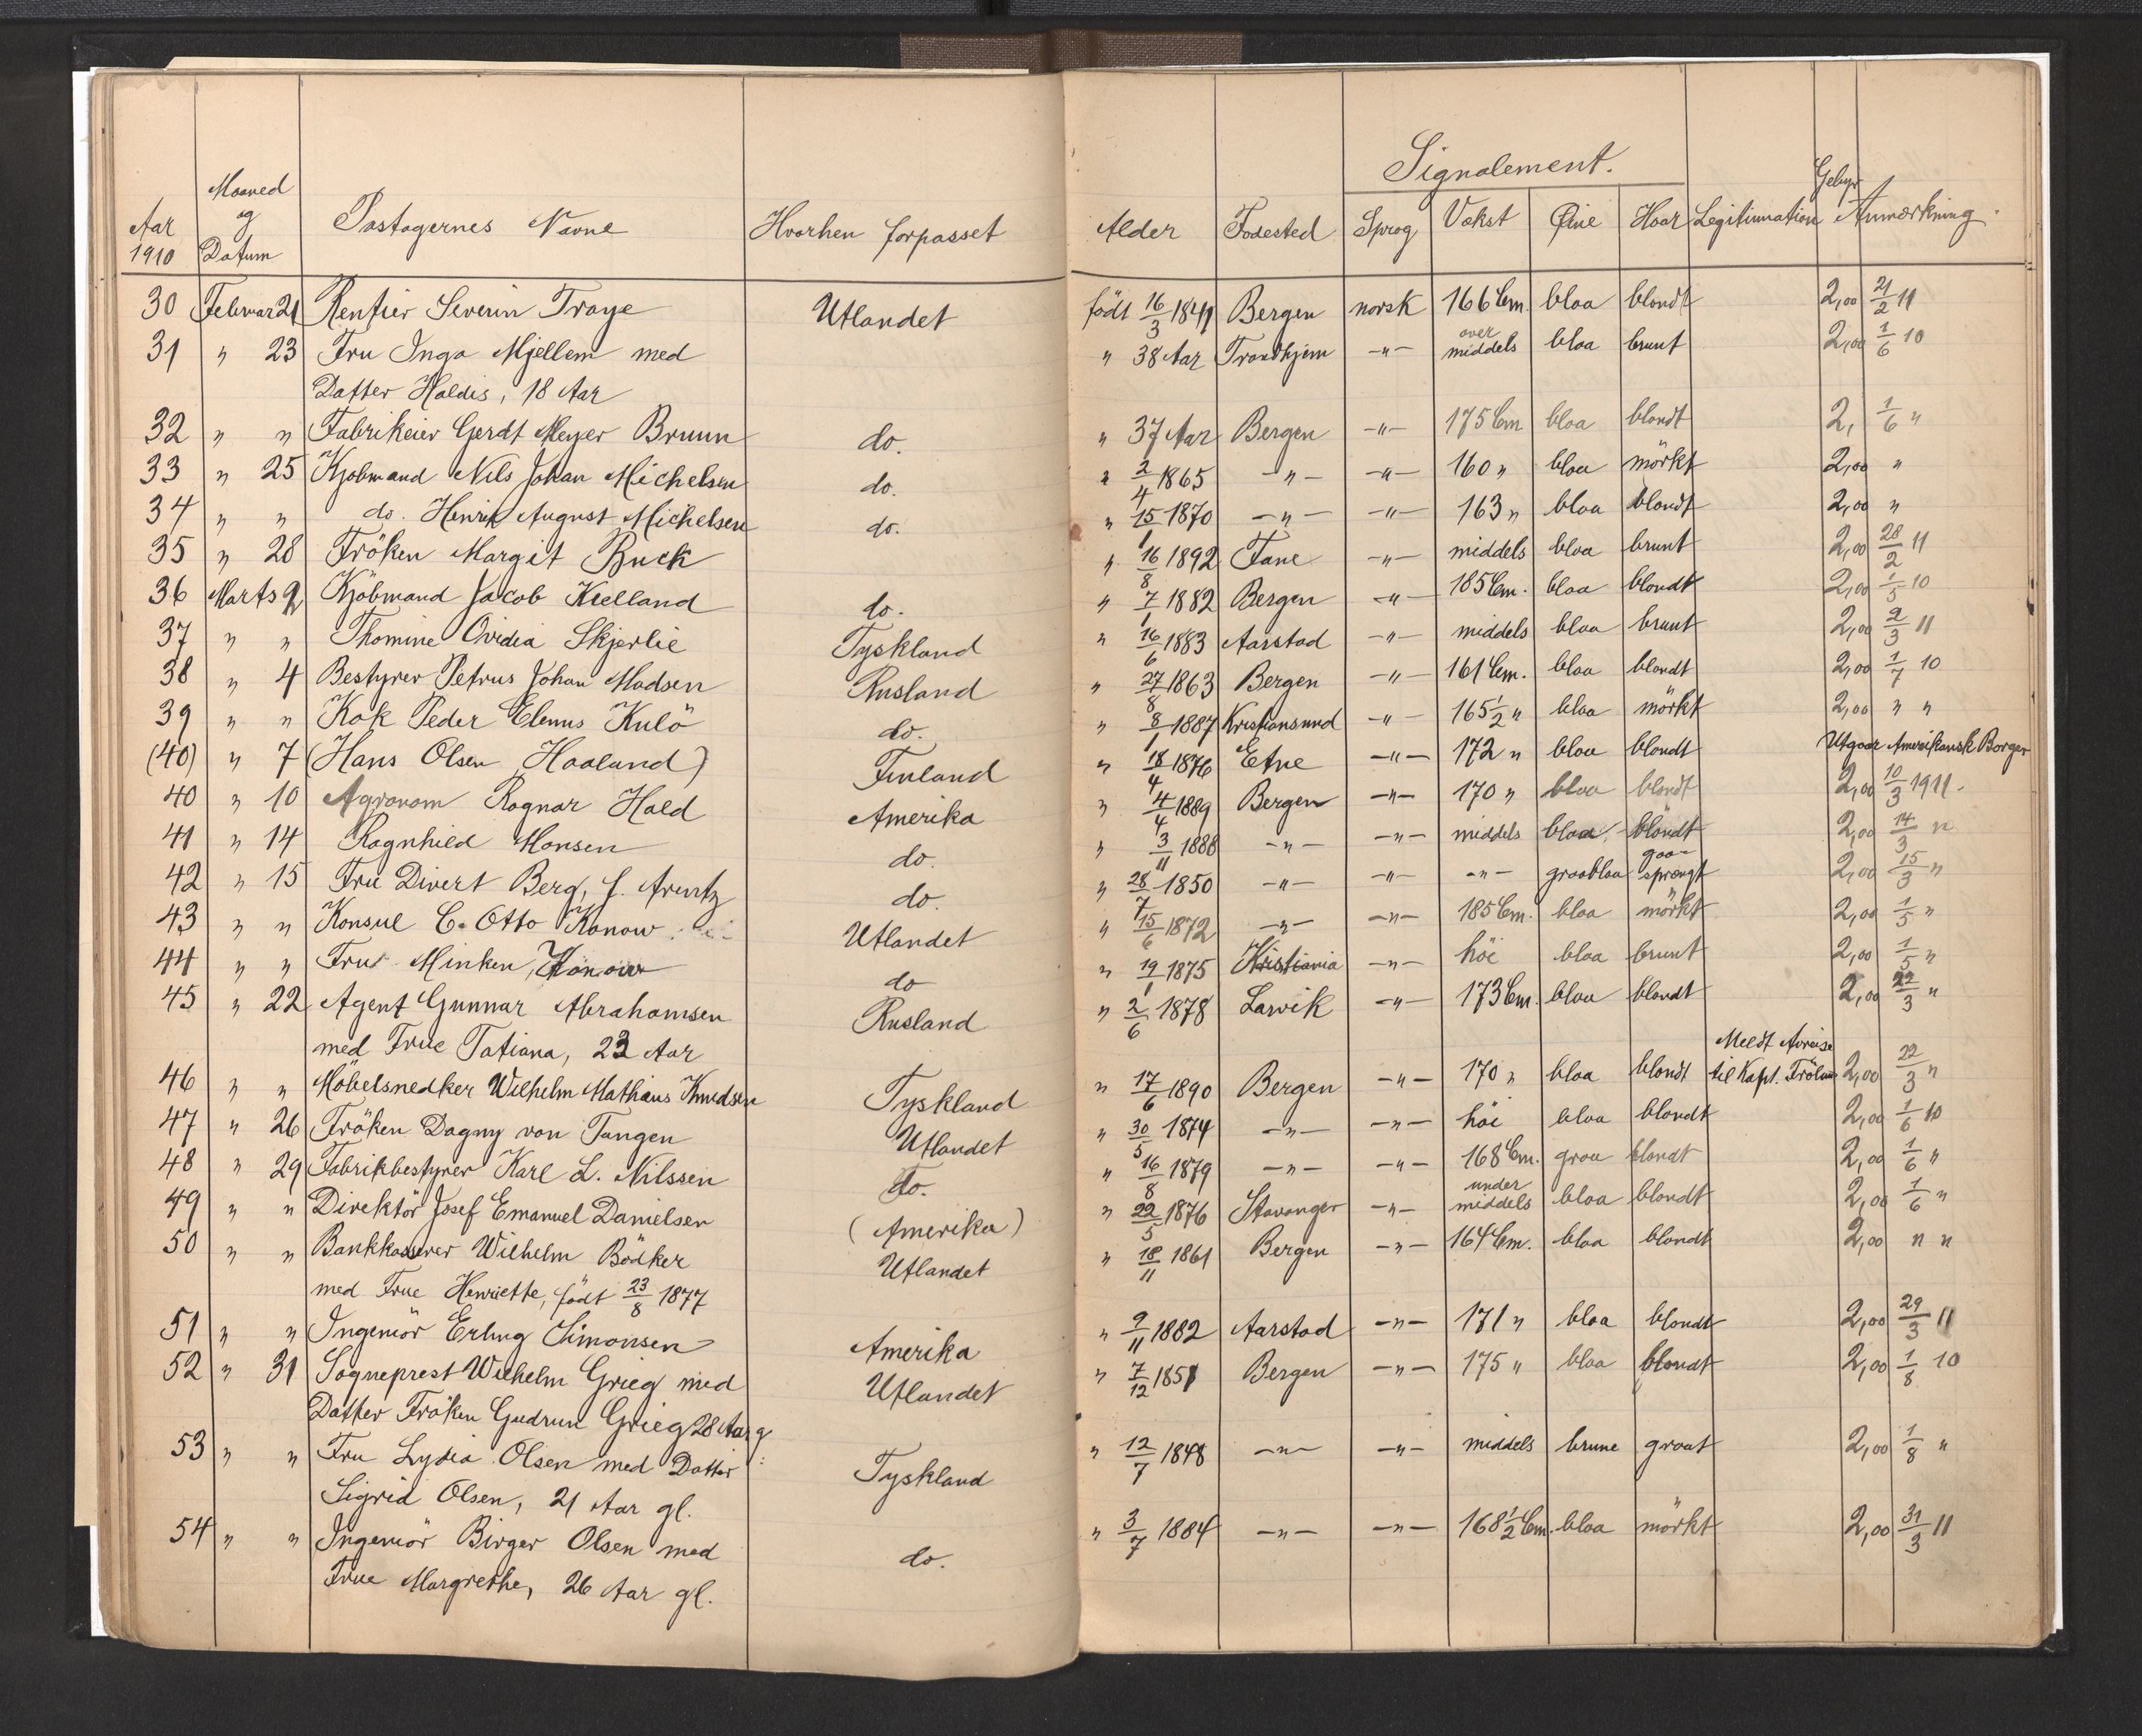 Signalement.
Aar 1910 Maaned og Datum Pastagernes Navne Hvorhen forpasset Alder Fødested Sprog Vekst Øine Haar Legitimation Gebyr Anmærkning.
30 Februar 21 Rentier Severin Traye Utlandet født 16/3 1841 Bergen norsk 166 Cm. blaa blondt 2,00 21/2 11
31 " 23 Fru Inga Mjellem med " 38 Aar Trondhjem -"- over middels blaa brunt 2,00 1/6 10
Datter Haldis, 18 Aar
32 " " Fabrikeier Gerdt Meyer Bruun do. " 37 Aar Bergen -"- 175 Cm blaa blondt 2, 1/6 "
33 " 25 Kjøbmand Nils Johan Michelsen do. " 2/4 1865 -"- -"- 160 " blaa mörkt 2,00 "
34 " " do. Henrik August Michelsen do. " 15/1 1870 -"- -"- 163 " blaa blondt 2,00 "
35 " 28 Fröken Margit Buck " 16/8 1892 Fane -"- middels blaa brunt 2,00 28/2 11
36 Marts 2 Kjöbmand Jacob Kielland do. " 7/1 1882 Bergen -"- 185 Cm. blaa blondt 2,00 1/5 10
37 " " Thomine Ovidia Skjerlie Tyskland " 16/6 1883 Aarstad -"- middels blaa brunt 2,00 2/3 11
38 " 4 Bestyrer Petrus Johan Madsen Rusland " 27/8 1863 Bergen -"- 161 Cm. blaa blondt 2,00 1/7 10
39 " " Kok Peder Elenus Kulö do. " 8/1 1887 Kristiansund -"- 165 1/2 " blaa mörkt 2,00 " "
(40) " 7 (Hans Olsen Haaland) Finland " 18/4 1876 Etne -"- 172 " blaa blondt Utgaar Amerikansk Borger
40 " 10 Agronom Ragnar Hald Amerika " 4/4 1889 Bergen -"- 170 " blaa blondt 2,00 10/3 1911.
41 " 14 Ragnhild Monsen do. " 3/11 1888 -"- -"- middels blaa blondt 2,00 14/3 "
42 " 15 Fru Divert Berg, f. Arentz do. " 28/7 1850 -"- -"- -"- graablaa graasprængt 2,00 15/3 "
43 " " Konsul C. Otto Konow Utlandet " 15/6 1872 -"- -"- 185 Cm. blaa mörkt 2,00 1/5 "
44 " " Fru Minken Konow do " 19/1 1875 Kristiania -"- höi blaa brunt 2,00 1/5 "
45 " 22 Agent Gunnar Abrahamsen Rusland " 2/6 1878 Larvik -"- 173 Cm. blaa blondt 2,00 22/3 "
med Frue Tatiana, 23 Aar
46 " " Möbelsnedker Wilhelm Mathias Knudsen Tyskland " 17/6 1890 Bergen -"- 170 " blaa blondt Meldt Avreise til Kapt. 2,00 22/3 "
47 " 26 Fröken Dagny von Tangen Utlandet " 30/5 1874 -"- -"- höi blaa blondt 2,00 1/6 10
48 " 29 Fabrikbestyrer Karl L. Nilssen do. " 16/8 1879 -"- -"- 168 Cm. graa blondt 2,00 1/6 "
49 " " Direktör Josef Emanuel Danielsen (Amerika) " 22/5 1876 Stavanger -"- under middels blaa blondt 2,00 1/6 "
50 " " Bankkasserer Wilhelm Bödker Utlandet " 18/11 1861 Bergen -"- 164 Cm. blaa blondt 2,00 " "
med Frue Henriette, født 23/8 1877
51 " " Ingeniör Erling Simonsen Amerika " 9/11 1882 Aarstad -"- 171 " blaa blondt 2,00 29/3 11
52 " 31 Sogneprest Wilhelm Grieg med Utlandet " 7/12 1851 Bergen -"- 175 " blaa blondt 2,00 1/8 10
Datter Fröken Gudrun Grieg 28 Aar g.
53 " " Fru Lydia Olsen med Datter Tyskland " 12/7 1848 -"- -"- middels brune graat 2,00 1/8 "
Sigrid Olsen, 21 Aar gl.
54 " " Ingeniör Birger Olsen med do. " 3/7 1884 -"- -"- 168 1/2 Cm. blaa mörkt 2,00 31/3 11
Frue Margrethe, 26 Aar gl.